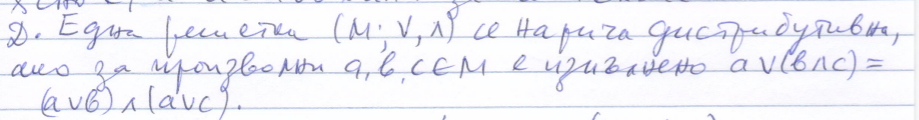 Д. Една решетка (M; ∨, ∧) се нарича дистрибутивна,
ако за произволни a, b, c ∈ M е изпълнено a ∨ (b ∧ c) =
(a ∨ b) ∧ (a ∨ c).